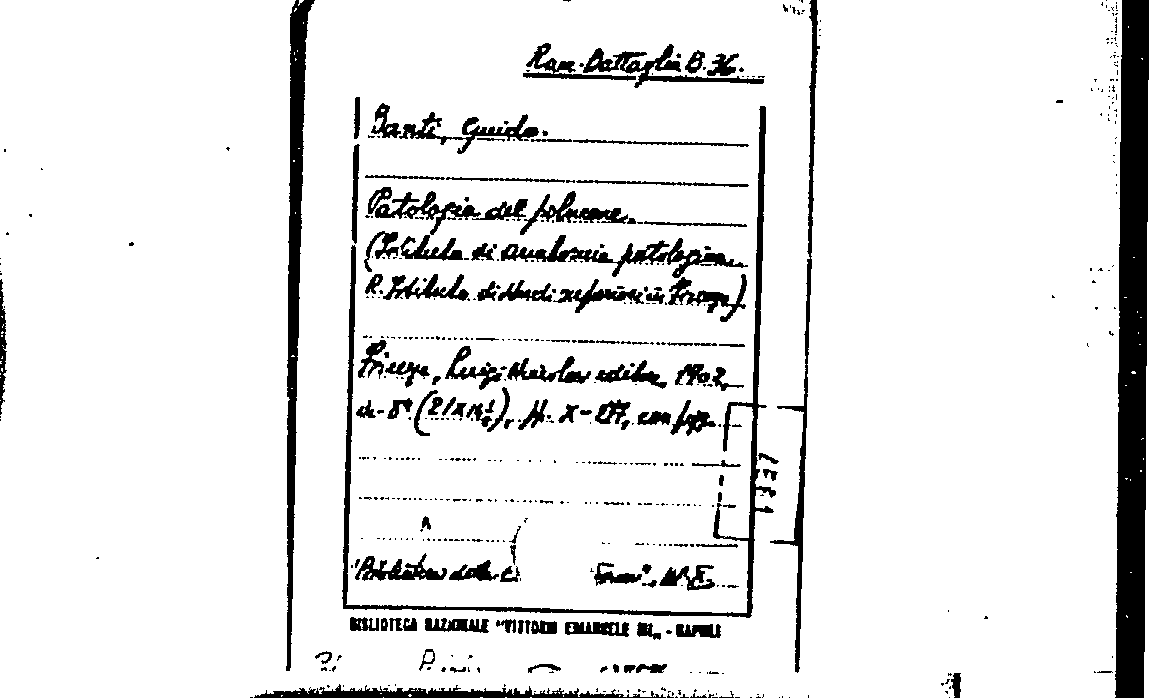 Racc. Battaglia B. 36.
Banti, Guido.
Patologia del polmone.
(Istituto di anatomia patologica.
R. Istituto di studi superiori in Firenze)
Firenze, Luigi editore, 1902,
in-8° (21x14½), pp. X-277, con figg.
Biblioteca della
BIBLIOTECA NAZIONALE "VITTORIO EMANUELE III„ - NAPOLI